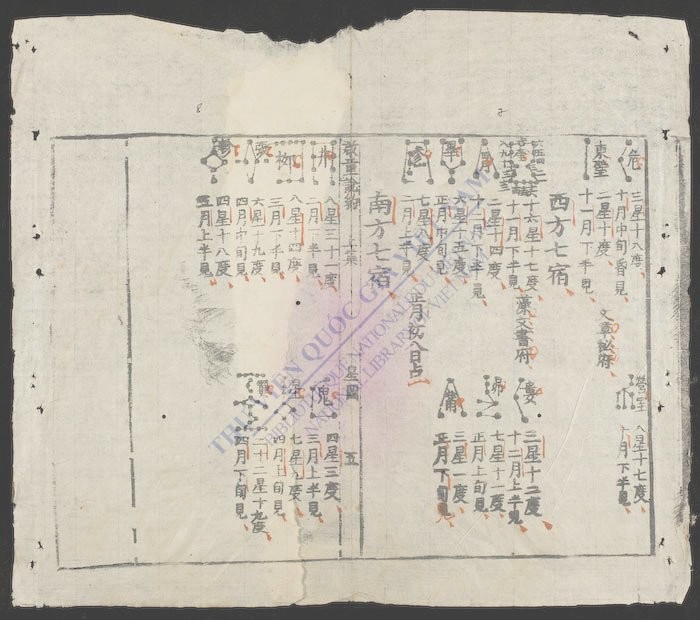 危
三星十八度
十月中旬昏見
營室
八星十七度
十月下半見
東壁
二星十度
十一月下半見
西方七宿
十六星十七度
十一月下半見
文書府
婁
三星十二度
十二月上半見
二星十四度
十二月下半見
昴
七星十一度
正月上旬見
畢
六星十五度
正月中旬見
三星一度
正月下旬見
參
七星九度
二月上半見
南方七宿
正月初八日占
五
井
八星三十一度
二月下半見
鬼
四星三度
三月上半見
柳
八星十四度
三月下半見
星
四月上旬見
張
六星十九度
四月中旬見
翼
二十二星十九度
四月下旬見
四星十八度
五月上半見
THƯ VIỆN QUỐC GIA VIỆT NAM
NATIONAL LIBRARY OF VIETNAM